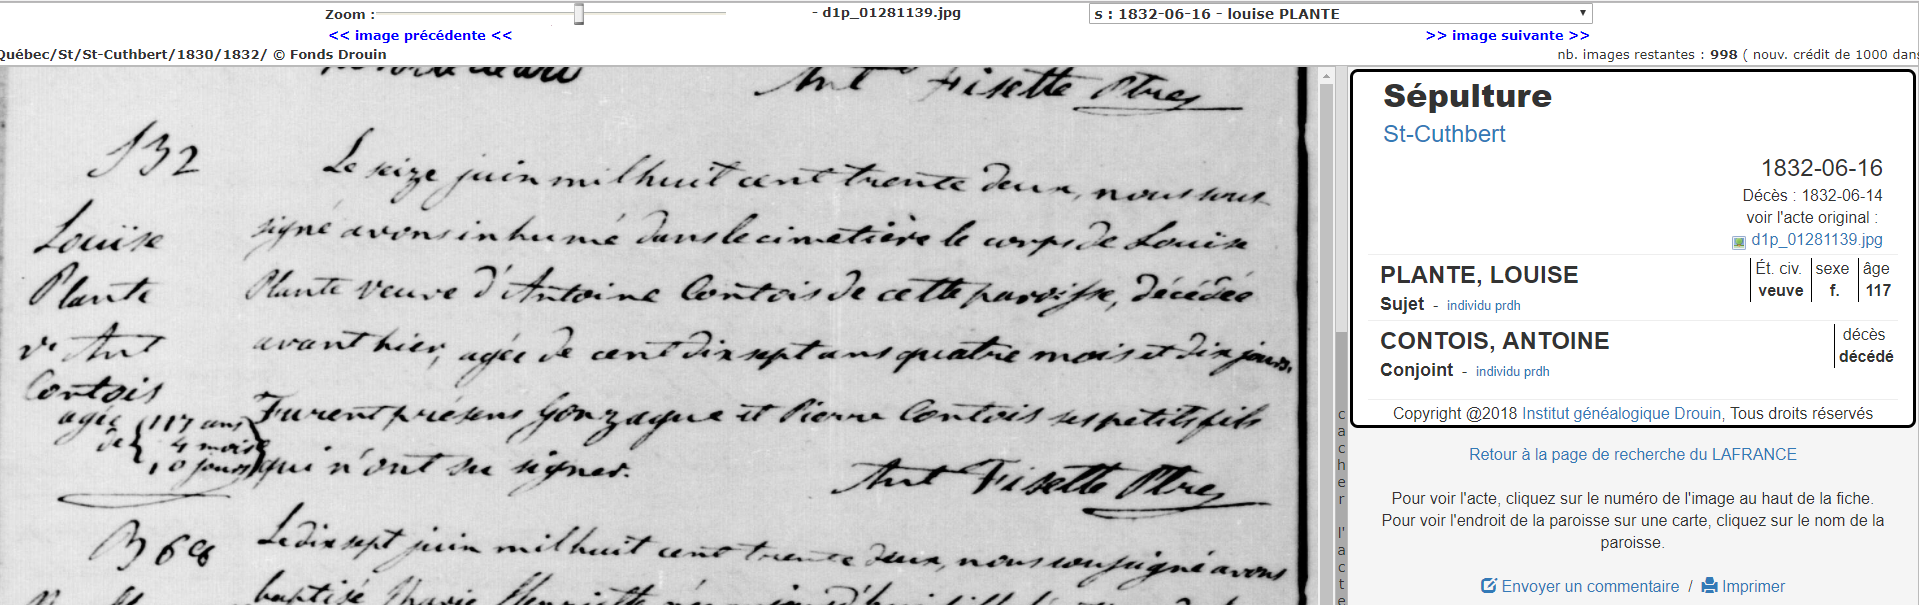 Zoom :
- d1p_01281139.jpg
s : 1832-06-16 - louise PLANTE
<< image précédente <<
>> image suivante >>
Québec/St/St-Cuthbert/1830/1832/ © Fonds Drouin
nb. images restantes : 998 ( nouv. crédit de 1000 dans
Ant Fisette Ptre
S 32
Louise
Plante
ve Ant
Contois
agée
de
117 ans
4 mois
10 jours
Le seize juin mil huit cent trente deux, nous sous
signé avons inhumé dans le cimetière le corps de Louise
Plante veuve d'Antoine Contois de cette paroisse, décédée
avant hier, agée de cent dix sept ans quatre mois et dix jours.
Furent présens Gonzague et Pierre Contois ses petits fils
qui n'ont su signer.
Ant Fisette Ptre
B 68
Le dix sept juin mil huit cent trente deux, nous soussigné avons
baptisé Marie Henriette
cacher l'acte
Sépulture
St-Cuthbert
1832-06-16
Décès : 1832-06-14
voir l'acte original :
d1p_01281139.jpg
PLANTE, LOUISE
Sujet - individu prdh
Ét. civ. sexe âge
veuve f. 117
CONTOIS, ANTOINE
Conjoint - individu prdh
décès
décédé
Copyright @2018 Institut généalogique Drouin, Tous droits réservés
Retour à la page de recherche du LAFRANCE
Pour voir l'acte, cliquez sur le numéro de l'image au haut de la fiche.
Pour voir l'endroit de la paroisse sur une carte, cliquez sur le nom de la
paroisse.
Envoyer un commentaire / Imprimer